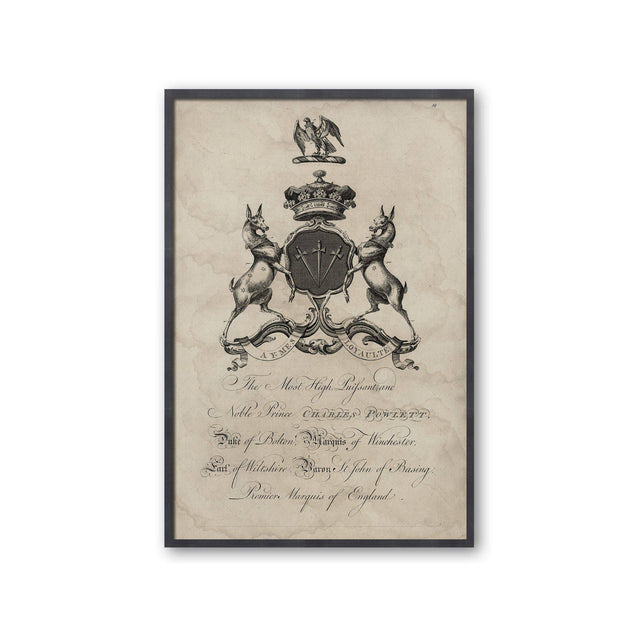 AYMES LOYAULTE
The Most High Puissant and
Noble Prince CHARLES POWLETT,
Duke of Bolton, Marquis of Winchester,
Earl of Wiltshire, Baron St. John of Basing
Premier Marquis of England.